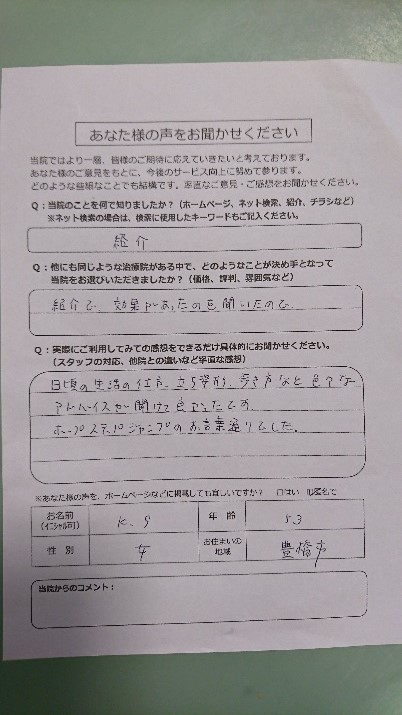 あなた様の声をお聞かせください
当院ではより一層、皆様のご期待に応えていきたいと考えております。
あなた様のご意見をもとに、今後のサービス向上に努めて参ります。
どのような些細なことでも結構です。率直なご意見・ご感想をお聞かせください。
Q：当院のことを何で知りましたか？（ホームページ、ネット検索、紹介、チラシなど）
※ネット検索の場合は、検索に使用したキーワードもご記入ください。
紹介
Q：他にも同じような治療院がある中で、どのようなことが決め手となって
当院をお選びいただきましたか？（価格、評判、雰囲気など）
紹介で、効果があったのを聞いたので
Q：実際にご利用してみての感想をできるだけ具体的にお聞かせください。
（スタッフの対応、他院との違いなど率直な感想）
日頃の生活の仕方、立ち姿勢、歩き方など色々な
アドバイスが聞けて良かったです。
ホップステップジャンプのお言葉通りでした。
※あなた様の声を、ホームページなどに掲載しても宜しいですか？ □はい 匿名で
お名前 K. S 年 齢 53
（イニシャル可）
性 別 女 お住まいの 豊橋市
地域
当院からのコメント：